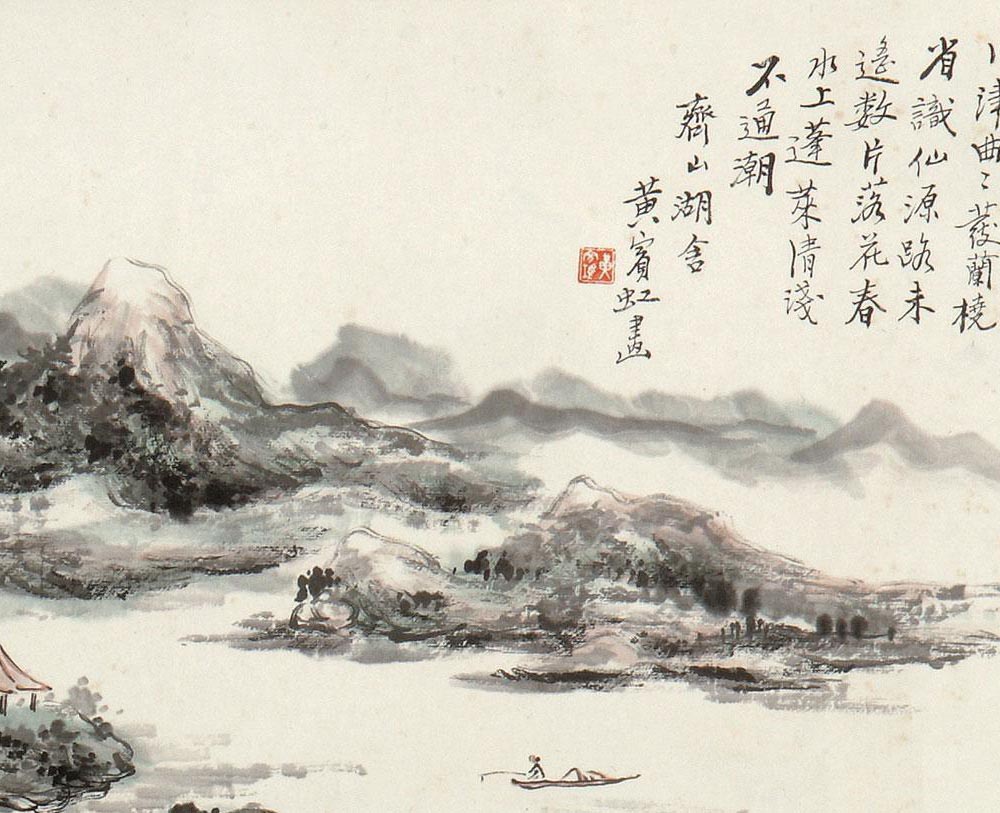 津曲〻發蘭橈
省識仙源路未
遙数片落花春
水上蓬萊清淺
不通潮
齊山湖舍
黃賓虹畫